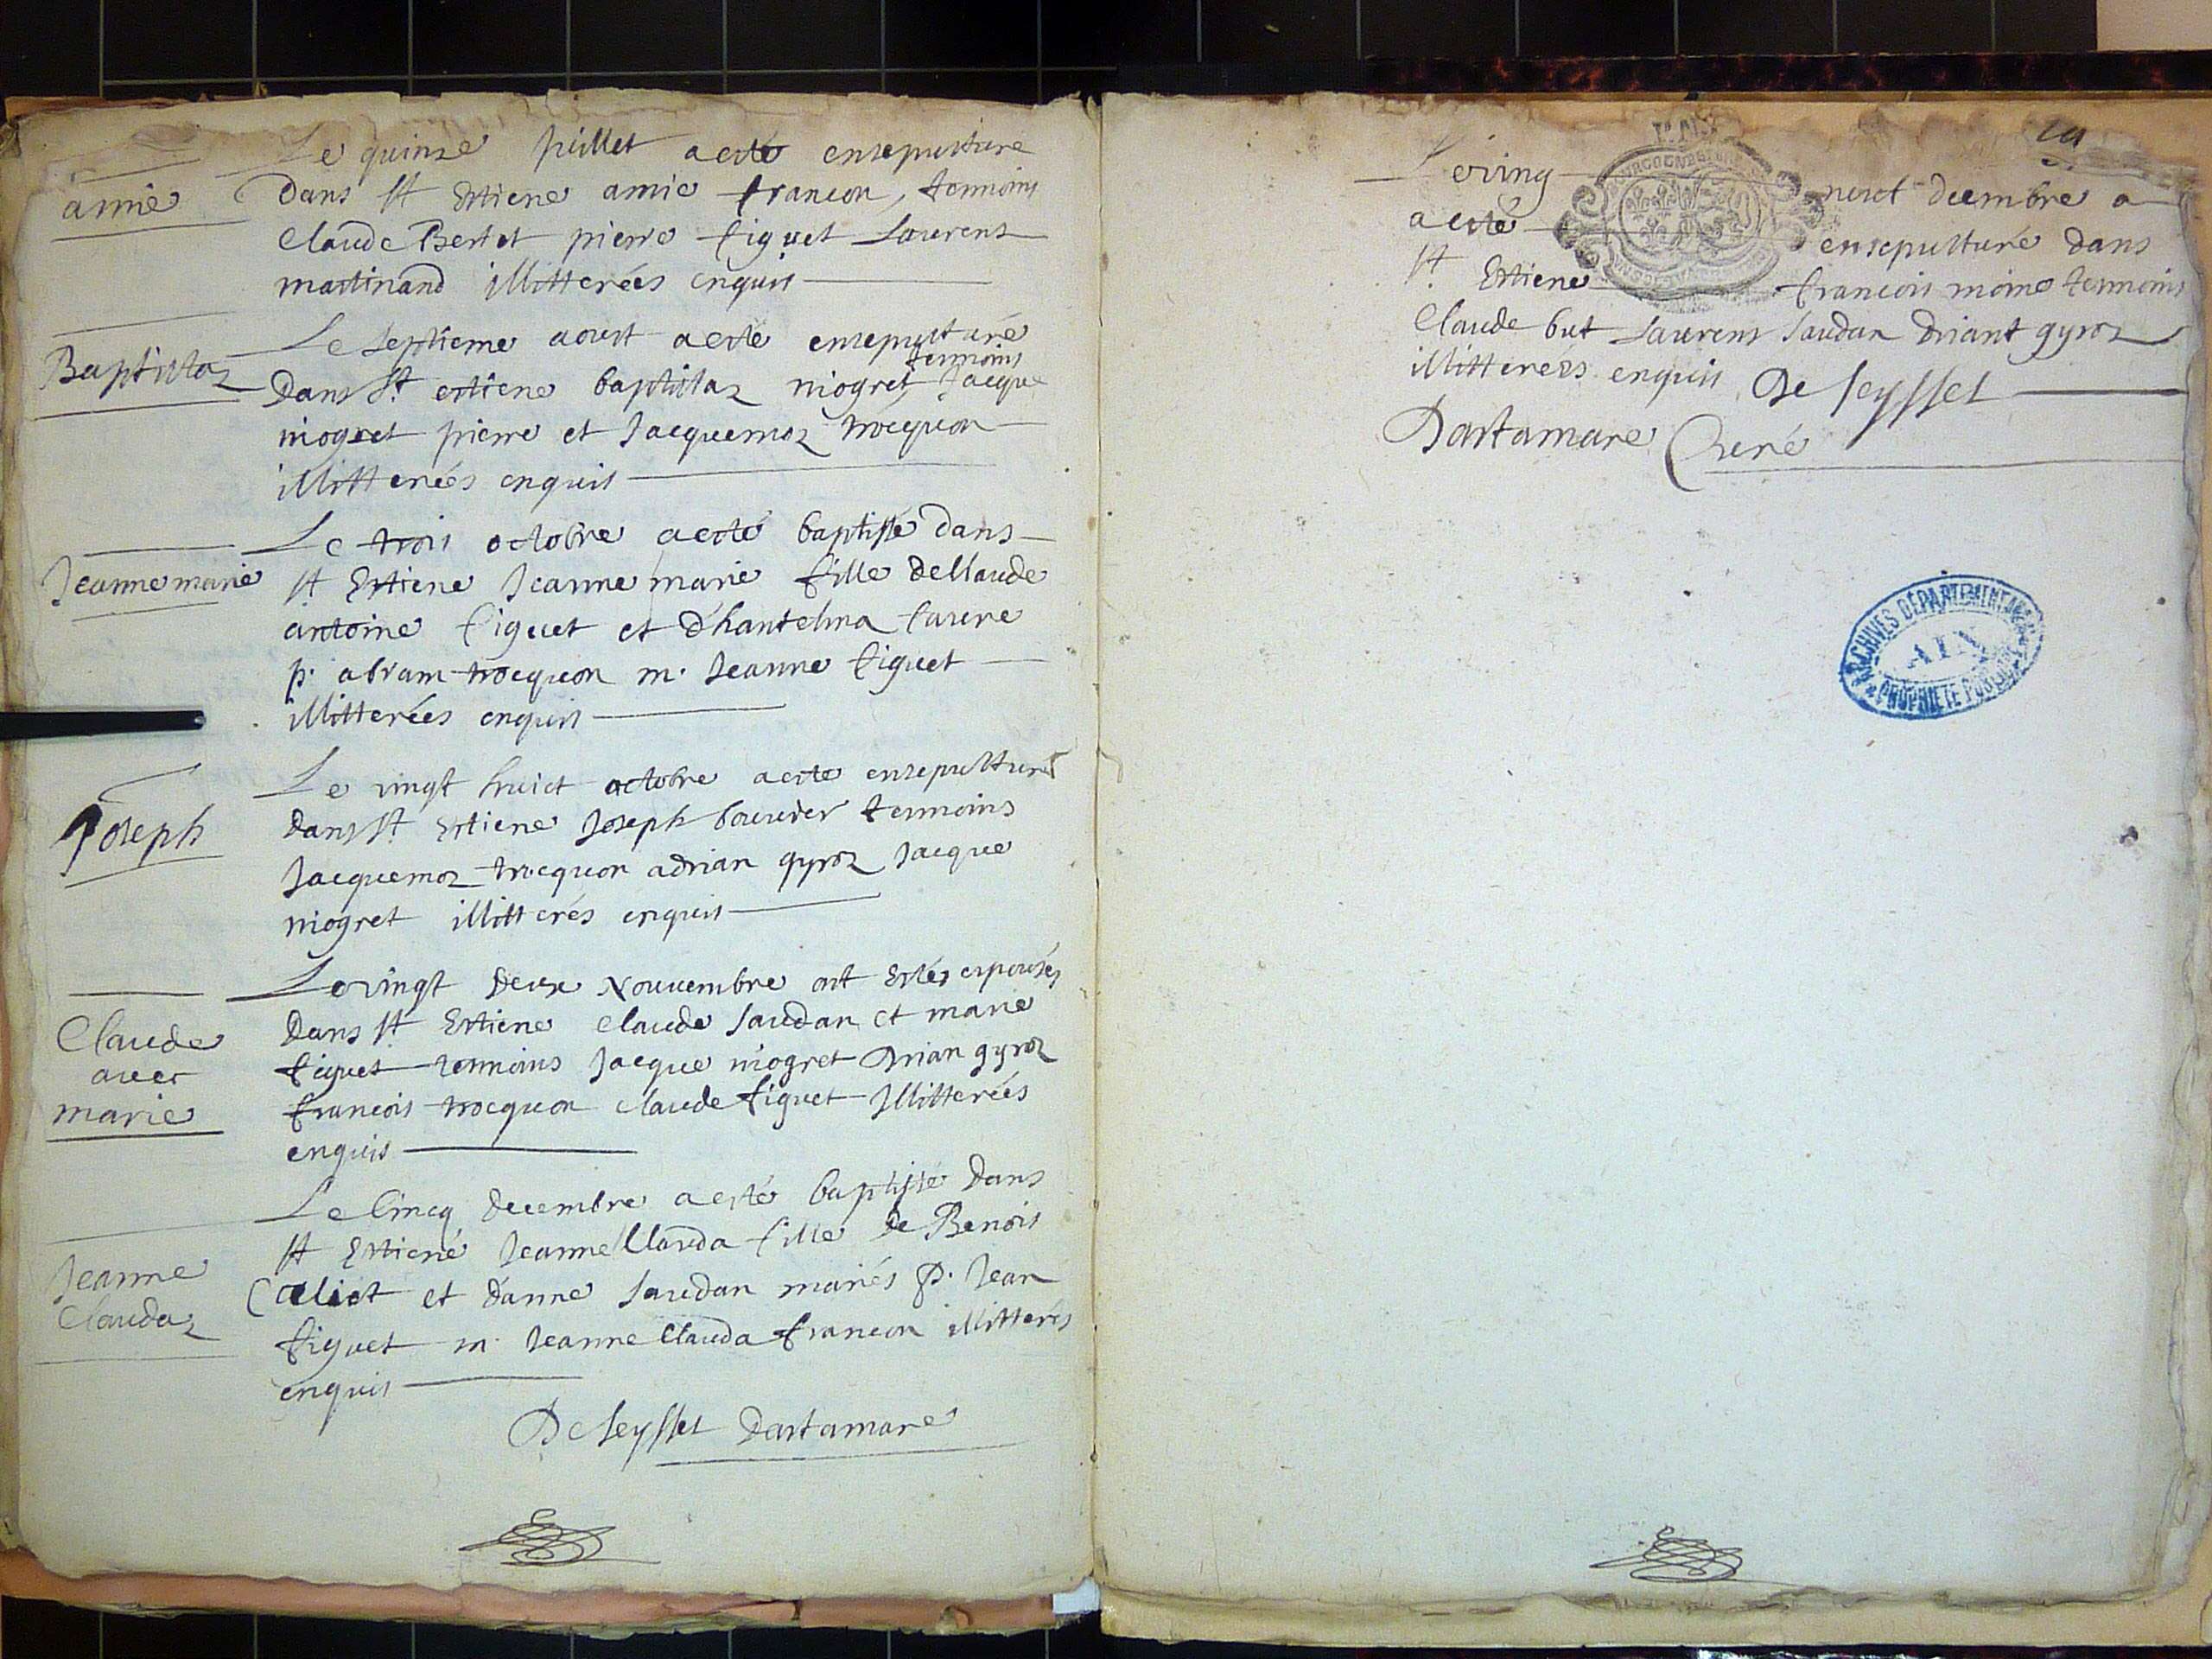 amie
Le quinze juillet a esté ensepulturé
dans st Estiene amie francon, temoins
Claude Bertet pierre figuet Laurens
martinand illitterées enquis
Baptistaz
Le septieme aoust a esté ensepulturé
temoins
dans st estiene baptistaz niogret Jacque
niogret pierre et Jacquemoz trocquon
illitterées enquis
Jeanne marie
Le trois octobre a esté baptisté dans
st Estiene Jeanne marie fille de Claude
antoine figuet et d'hantelma
p. abram trocquon m. Jeanne figuet
illitterées enquis
Joseph
Le vingt huict octobre a esté ensepulturé
dans st Estiene Joseph bouuier temoins
Jacquemoz trocquon adrian gyroz Jacque
niogret illitterés enquis
Claude
avec
marie
Le vingt deux Nouuembre ont estés espousés
dans st Estiene Claude Saudan et marie
figuet temoins Jacque niogret Drian gyroz
francois trocquon Claude figuet Illitterées
enquis
Jeanne
Claudaz
Le Cincq decembre a esté baptisté dans
st Estiene Jeanne Clauda fille de Benois
et d'anne Saudan mariés P. Jean
figuet m. Jeanne Clauda francon illitterés
enquis
De Seyssel Dartamare
Le ving neuf decembre a
a esté ensepulturé dans
st. Estiene francois moine temoins
Claude but Laurens Saudan Driant gyroz
illitterées enquis De Seyssel
Dartamare Curé
ARCHIVES DÉPARTEMENTALES
AIN
PROPRIÉTÉ PUBLIQUE